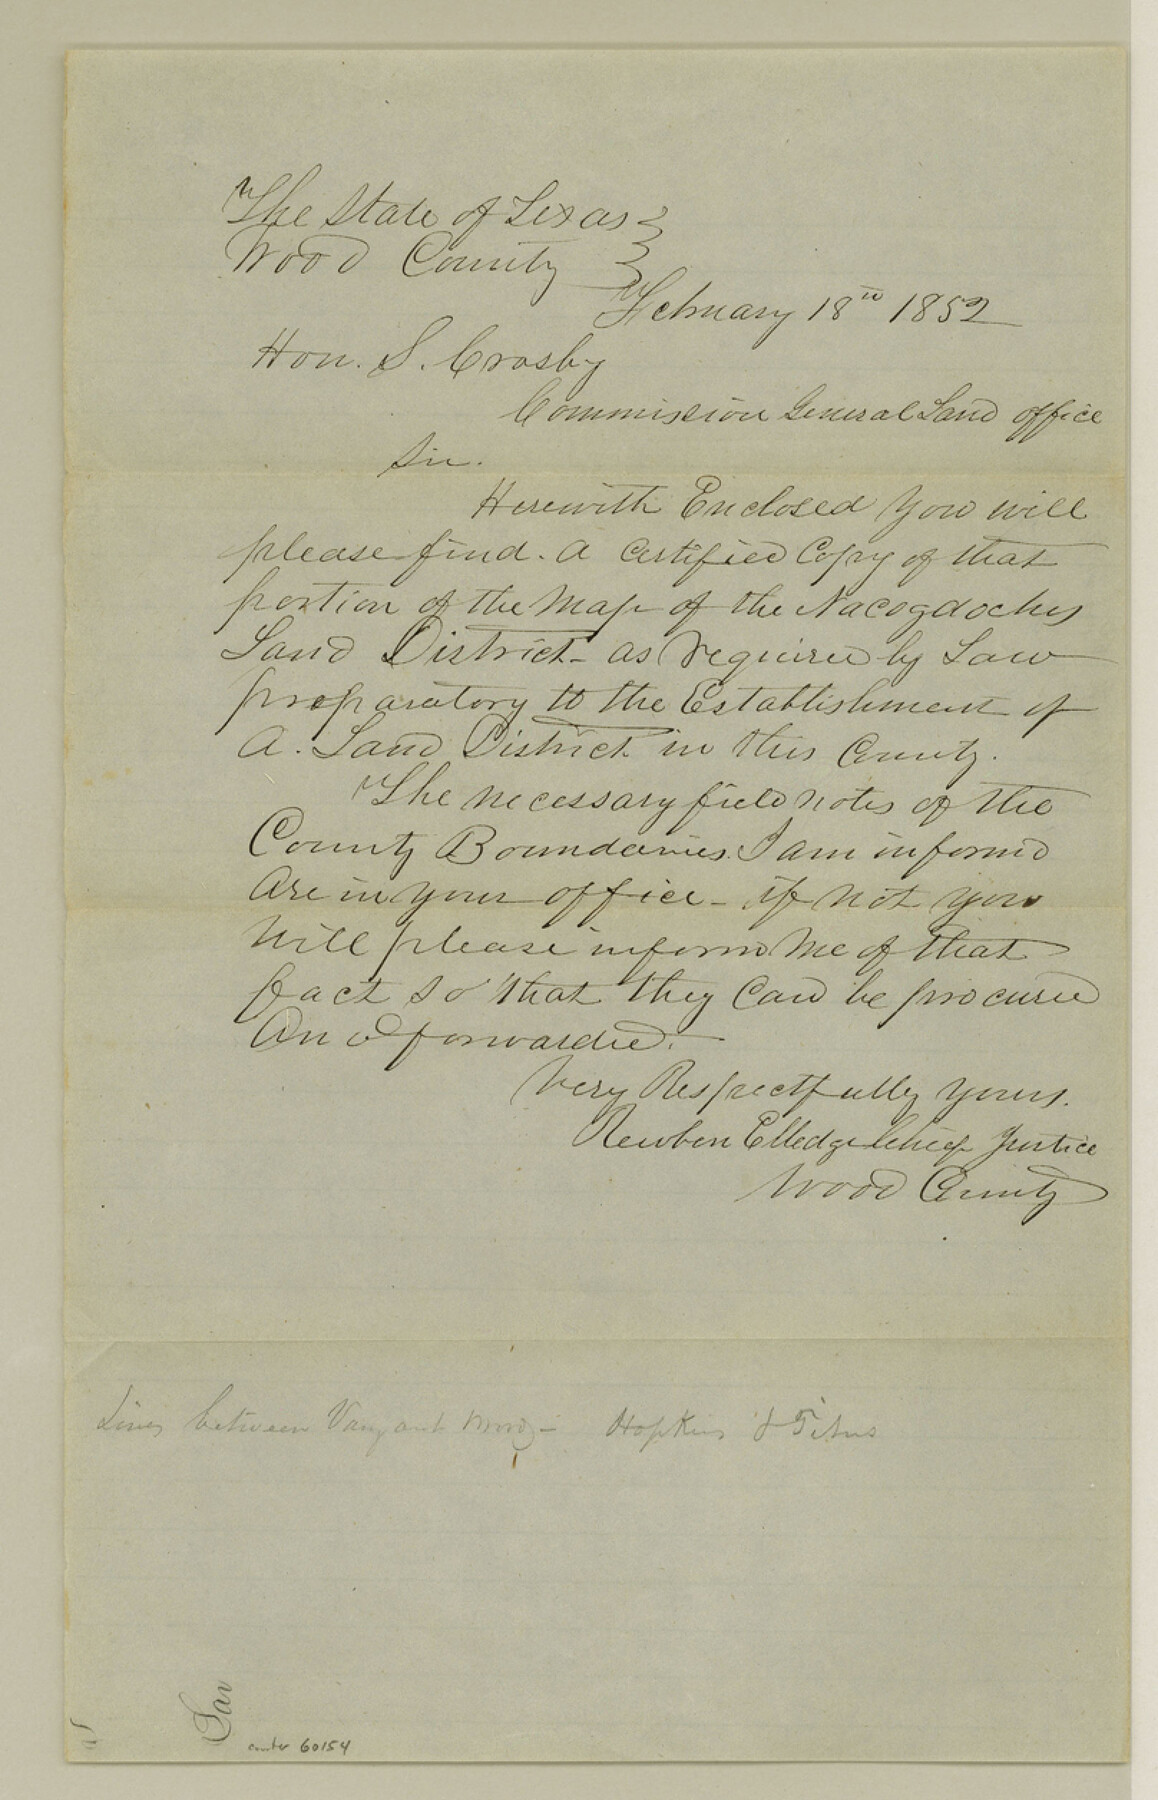 The State of Texas
Wood County
February 18th 1852
Hon. S. Crosby
Commission General Land office
Sir.
Herewith Enclosed you will
please find. A Certified Copy of that
portion of the Map of the Nacogdoches
Land District - as required by Law
preparatory to the Establishment of
A. Land District in this County.
The necessary field notes of the
County Boundaries. I am informed
Are in your office - if not you
will please inform me of that
fact so that they can be procured
And forwarded. -
Very Respectfully yours.
Reuben Elledge Chief Justice
Wood County
Lines between Vanzant Wood - Hopkins & Titus
counter 60154